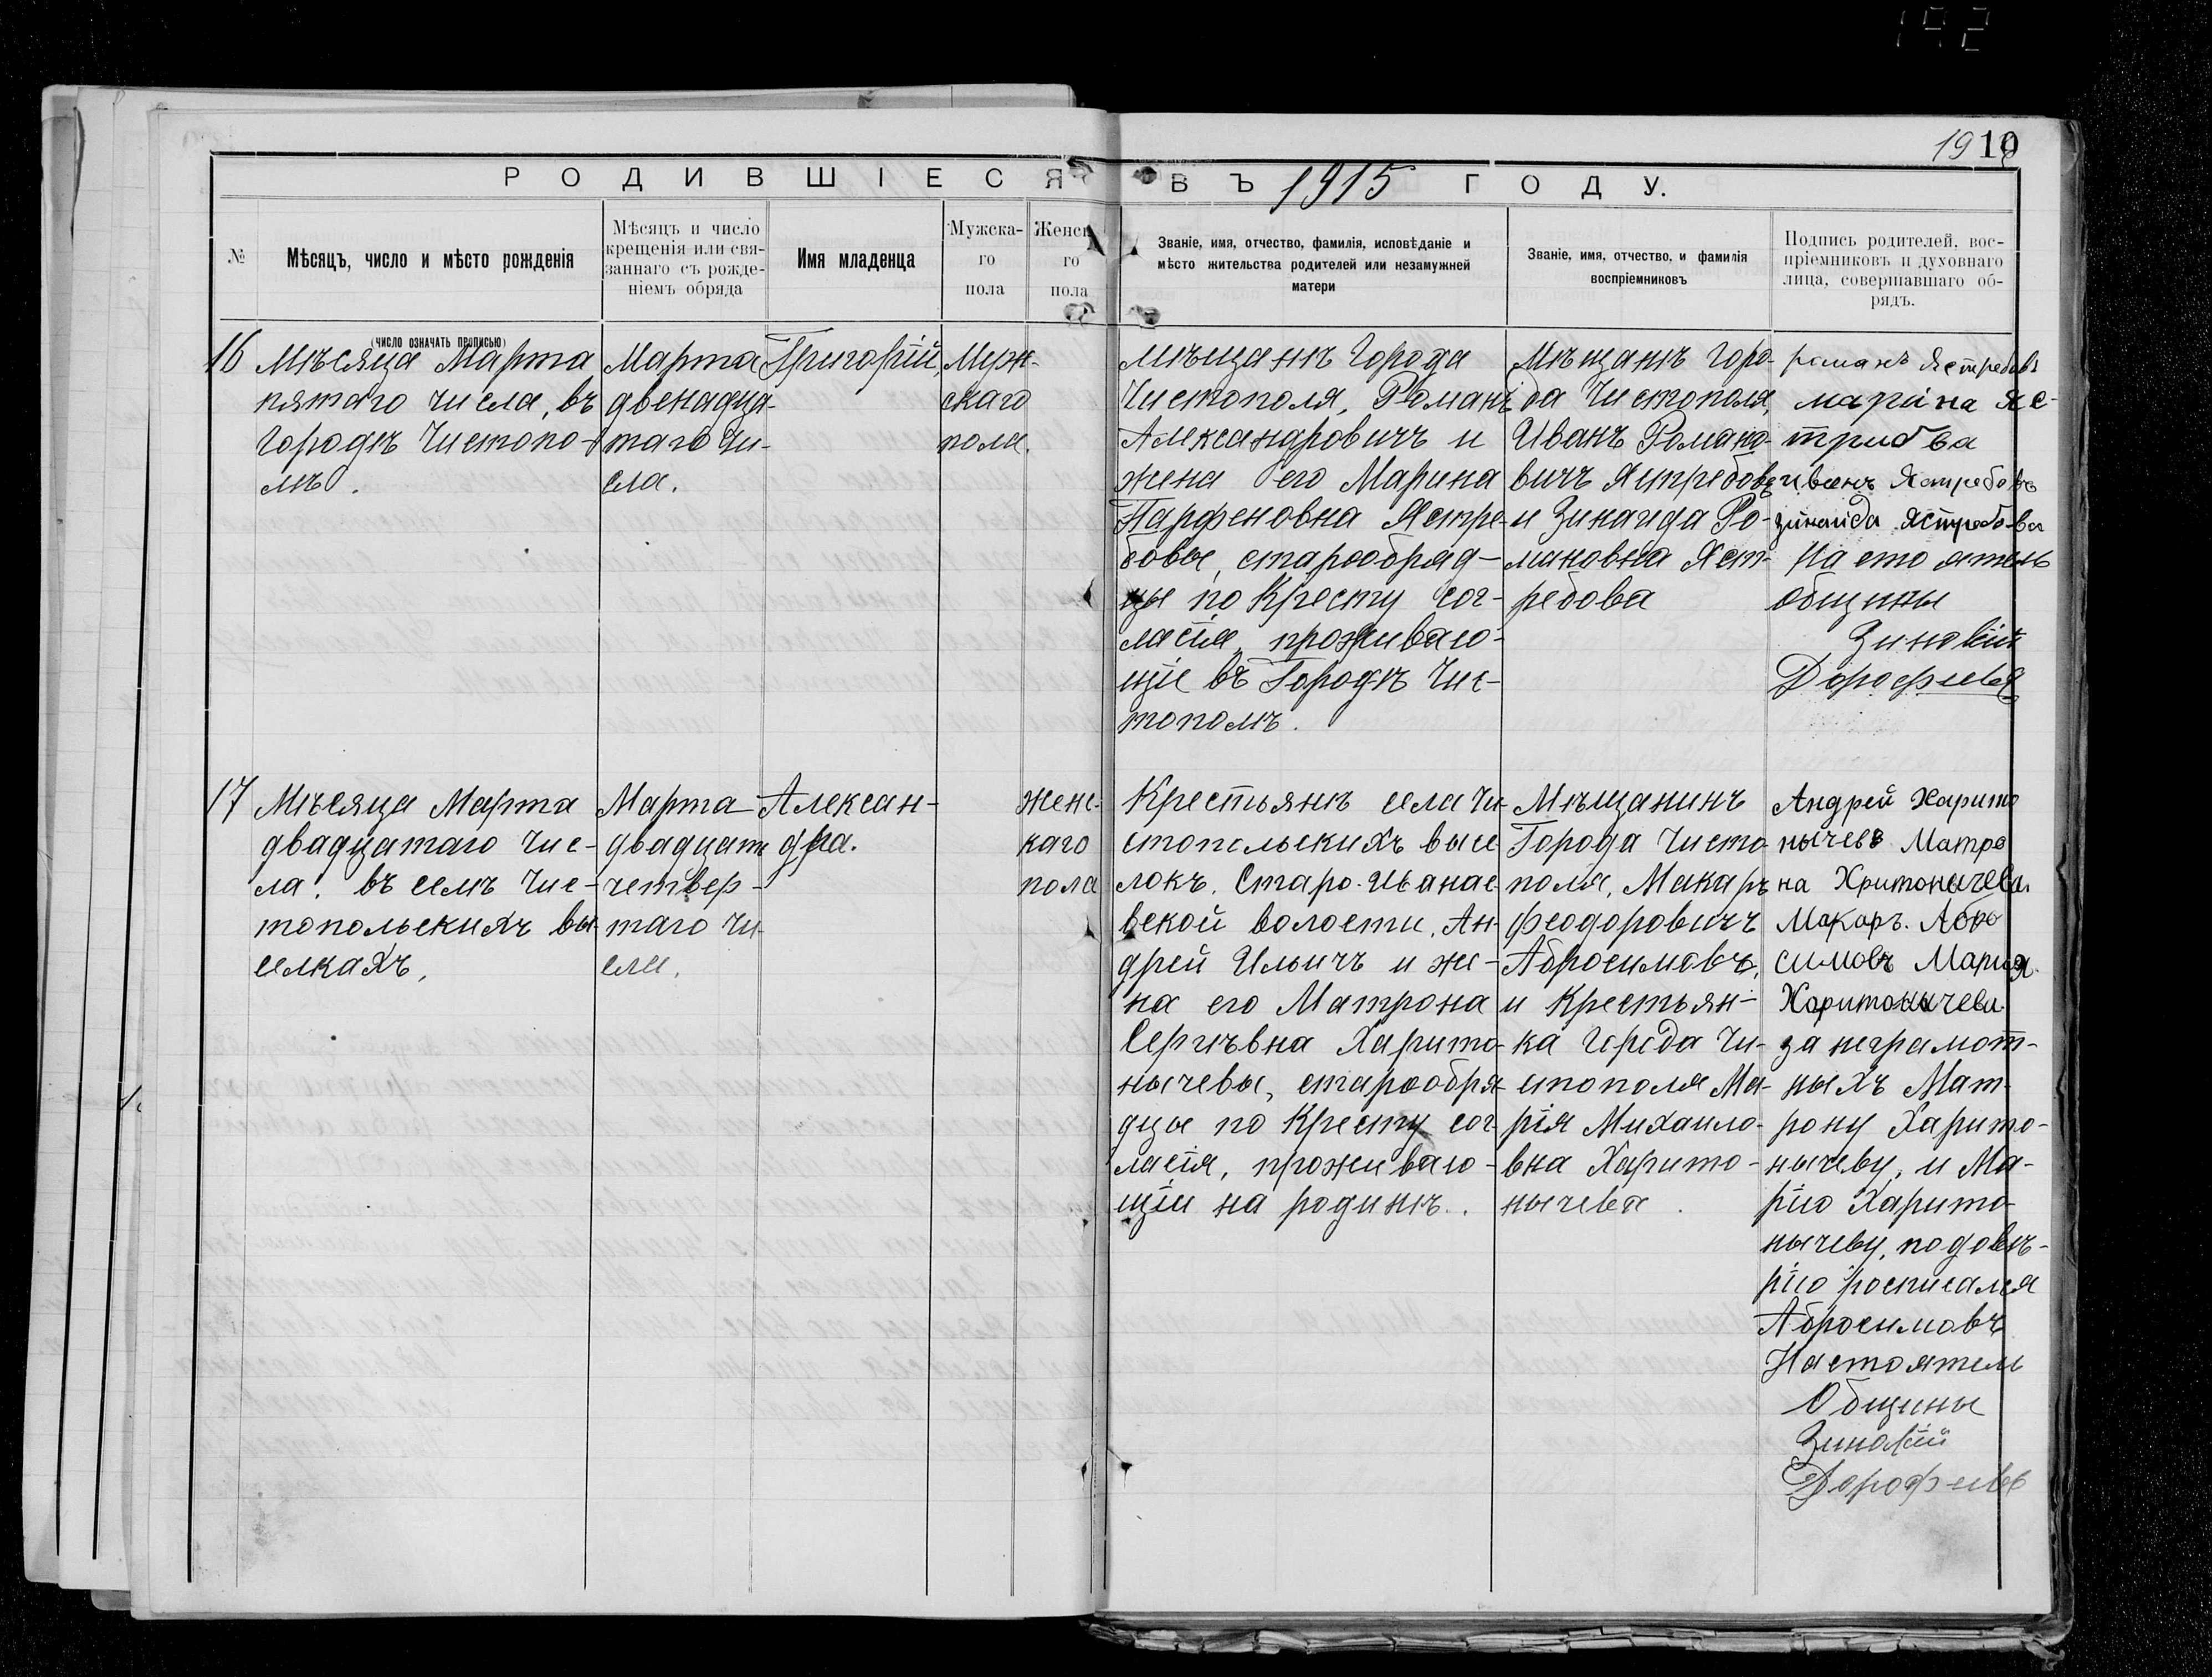 192
19 10
РОДИВШІЕСЯ ВЪ 1915 ГОДУ.
№
Мѣсяцъ, число и мѣсто рожденія
(число означать прописью)
Мѣсяцъ и число
крещенія или свя-
заннаго съ рожде-
ніемъ обряда
Имя младенца
Мужска-
го
пола
Женск
го
пола
Званіе, имя, отчество, фамилія, исповѣданіе и
мѣсто жительства родителей или незамужней
матери
Званіе, имя, отчество, и фамилія
воспріемниковъ
Подпись родителей, вос-
пріемниковъ и духовнаго
лица, совершавшаго об-
рядъ.
16
Мѣсяца Марта
пятаго числа, въ
Городѣ Чистопо-
лѣ.
Марта
двенадца-
таго Чи-
сла.
Григорій,
Муж-
скаго
пола.
Мѣщанѣ Города
Чистополя, Романъ
Александровичъ и
жена его Марина
Парфеновна Ястре-
бовы, старообряд-
цы по Кресту сог-
ласія, проживаю-
щіе въ Городѣ Чис-
тополѣ.
Мѣщанѣ Горо-
да Чистополя,
Иванъ Романо-
вичъ Ястребовъ
и Зинаида Ро-
мановна Яст-
ребова
романъ Ястребовъ
марiна яс-
трибва
иванъ Ястребовъ
зинаида Ястребова
Настоятель
общины
Зиновій
Дорофеевъ
17
Мѣсяца Марта
двадцатаго Чис-
ла. въ селѣ Чис-
топольскихъ вы-
селкахъ,
Марта
двадцать
четвер-
таго Чи-
сла,
Алексан-
дра.
Женс-
каго
пола
Крестьянѣ села Чи-
стопольскихъ высе
локъ, Старо-Иванае-
вской волости, Ан-
дрей Ильичъ и же-
на его Матрона
Сергѣвна Харито-
нычевы, старообря-
дцы по Кресту сог-
ласія, проживаю-
щіи на родинѣ..
Мѣщанинъ
Города Чисто-
поля, Макаръ
Феодоровичъ
Абросимовъ,
и Крестьян-
ка Города Чи-
стополя Ма-
рія Михаило-
вна Харито-
нычева.
Андрей Харито
нычевъ Матро
на Хритонычева.
Макаръ. Абро
симовъ Мария.
Харитонычева.
за неграмот-
ныхъ Мат-
рону Харито-
нычеву, и Ма-
рію Харито-
нычеву, по довѣ-
рію росписался
Абросимовъ
Настоятель
Общины
Зиновій
Дорофеевъ